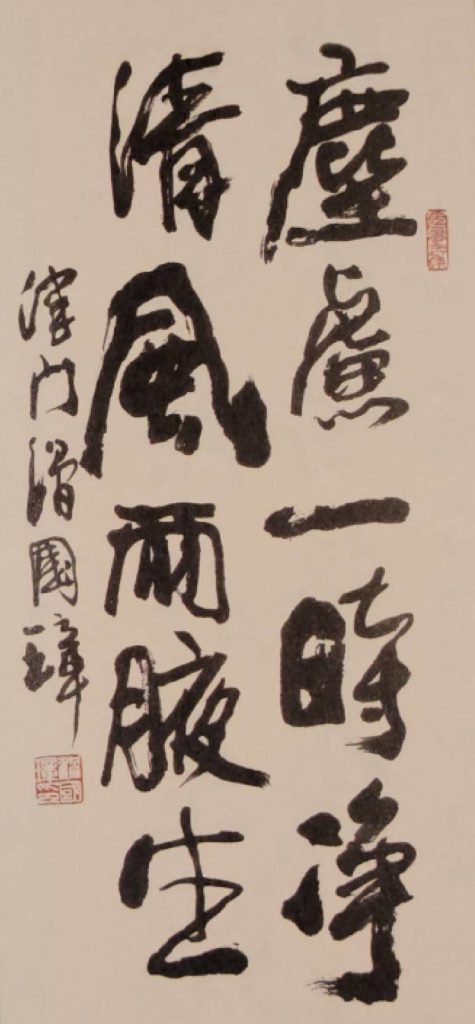 塵慮一時净
清風兩腋生
津門滑國璋